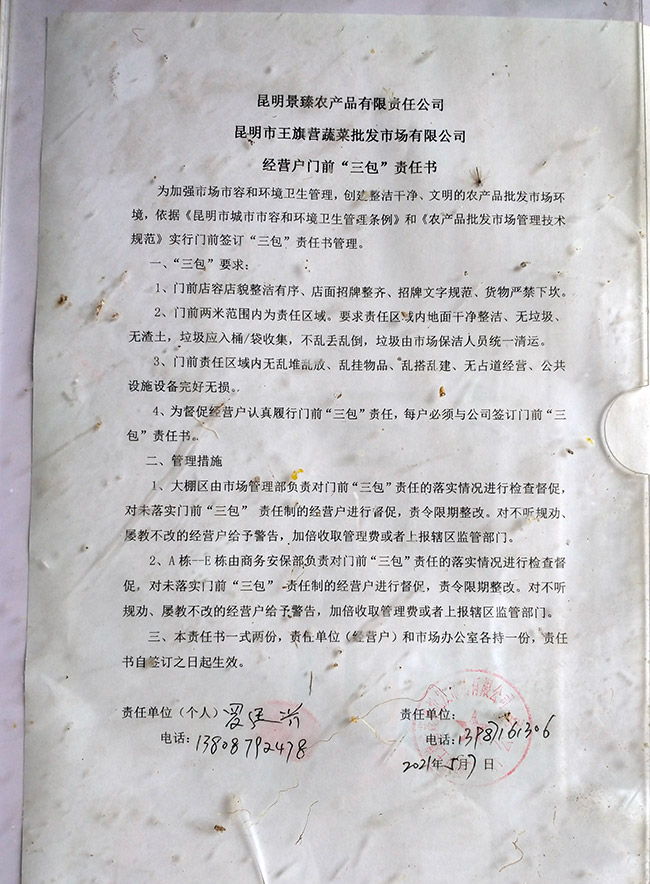 昆明景臻农产品有限责任公司
昆明市王旗营蔬菜批发市场有限公司
经营户门前“三包”责任书
为加强市场市容和环境卫生管理，创建整洁干净、文明的农产品批发市场环
境，依据《昆明市城市市容和环境卫生管理条例》和《农产品批发市场管理技术
规范》实行门前签订“三包”责任书管理。
一、“三包”要求：
1、门前店容店貌整洁有序、店面招牌整齐、招牌文字规范、货物严禁下坎。
2、门前两米范围内为责任区域。要求责任区域内地面干净整洁、无垃圾、
无渣土，垃圾应入桶/袋收集，不乱丢乱倒，垃圾由市场保洁人员统一清运。
3、门前责任区域内无乱堆乱放、乱挂物品、乱搭乱建、无占道经营、公共
设施设备完好无损。
4、为督促经营户认真履行门前“三包”责任，每户必须与公司签订门前“三
包”责任书。
二、管理措施
1、大棚区由市场管理部负责对门前“三包”责任的落实情况进行检查督促，
对未落实门前“三包” 责任制的经营户进行督促，责令限期整改。对不听规劝、
屡教不改的经营户给予警告，加倍收取管理费或者上报辖区监管部门。
2、A 栋--E 栋由商务安保部负责对门前“三包”责任的落实情况进行检查督
促，对未落实门前“三包” 责任制的经营户进行督促，责令限期整改。对不听
规劝、屡教不改的经营户给予警告，加倍收取管理费或者上报辖区监管部门。
三、本责任书一式两份，责任单位（经营户）和市场办公室各持一份，责任
书自签订之日起生效。
责任单位（个人）
责任单位：
电话：13808792478
电话：13987161306
2021年5月7日